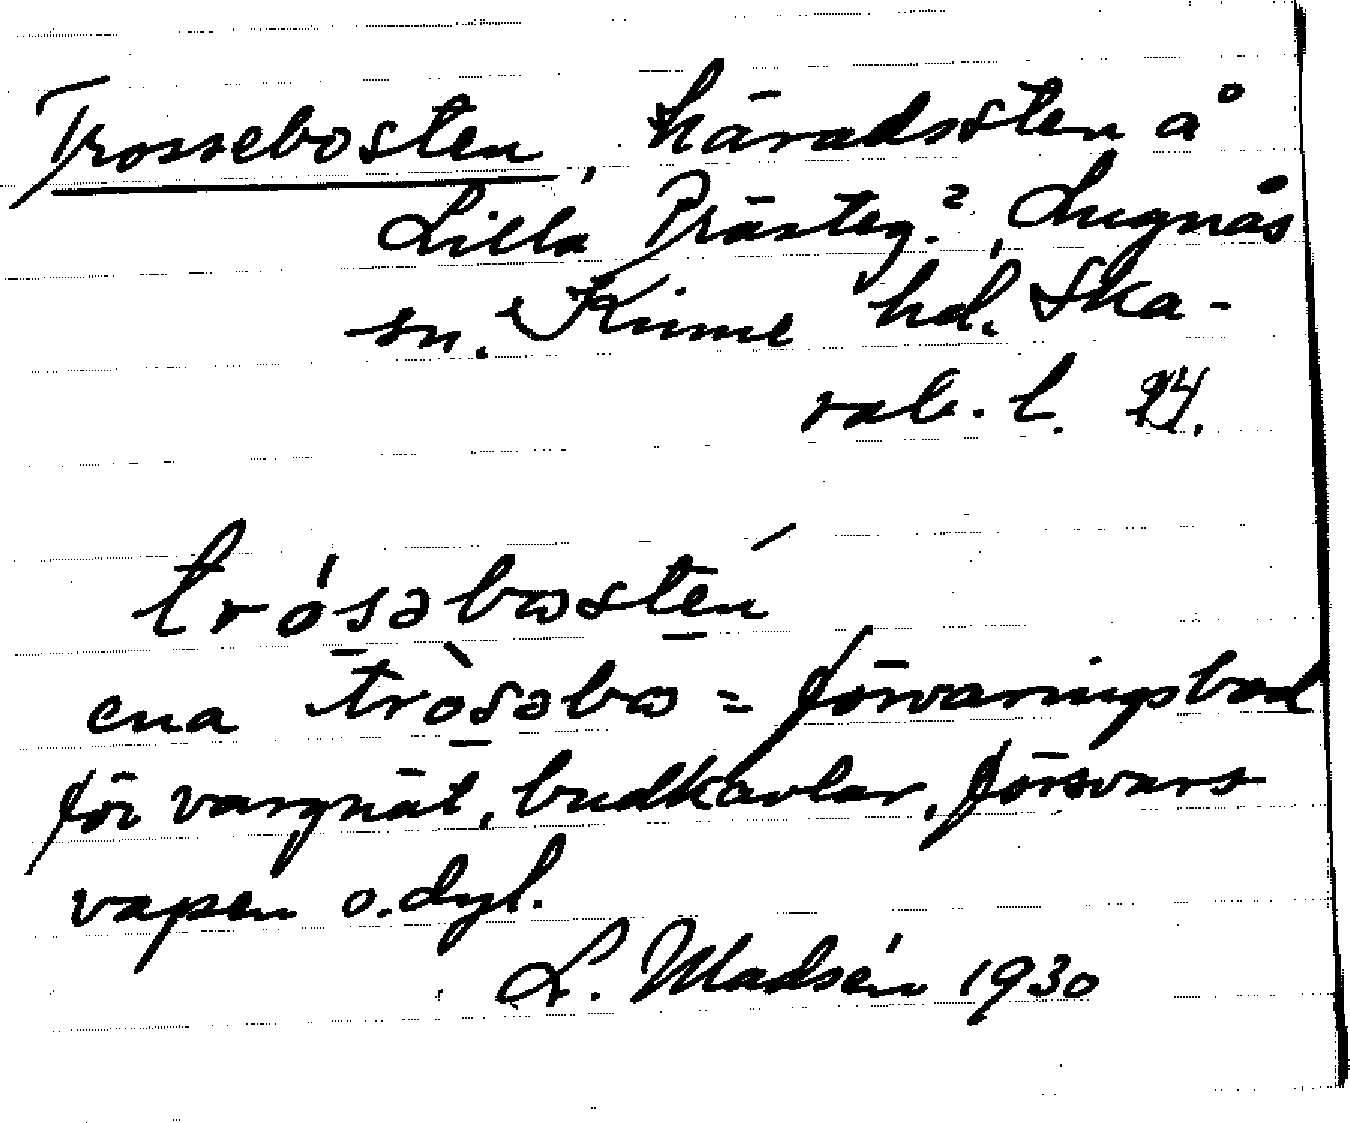 Trossebosten, häradssten å
Lilla Prästeg.?, Lugnås
sn. Kinne hd. Ska-
rab. l. 24.
trósəbωstén
ena tròsəbω = förvaringsbod
för vargnät, budkavlar, försvars
vapen o.dyl.
L. Madsén 1930